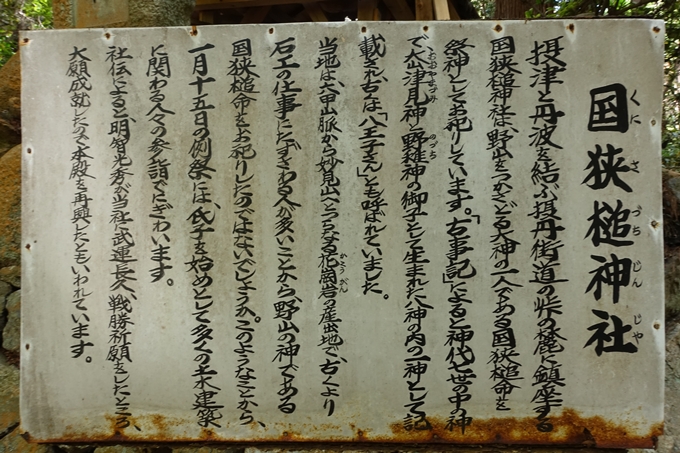 国狭槌神社
くにさづちじんじゃ
摂津と丹波を結ぶ摂丹街道の峠の麓に鎮座する
国狭槌神社は、野山をつかさどる大神の一人である国狭槌命を
祭神としてお祀りしています。「古事記」によると神代七世の中の神
で大山津見神と野雅神の御子として生まれた八神の内の一神として記
おおやまづみ
のづち
載され、古は「八王子さん」とも呼ばれていました。
当地は六甲山脈から妙見山へとつらなる花崗岩の産出地で、古くより
かこうがん
石工の仕事にたずさわる人が多いことから、野山の神である
国狭槌命をお祀りしたのではないでしょうか。このようなことから、
一月十五日の例祭には、氏子を始めとして多くの土木建築
に関わる人々の参詣でにぎわいます。
社伝によると、明智光秀が当社に武運長久、戦勝祈願をしたところ、
大願成就したので本殿を再興したともいわれています。